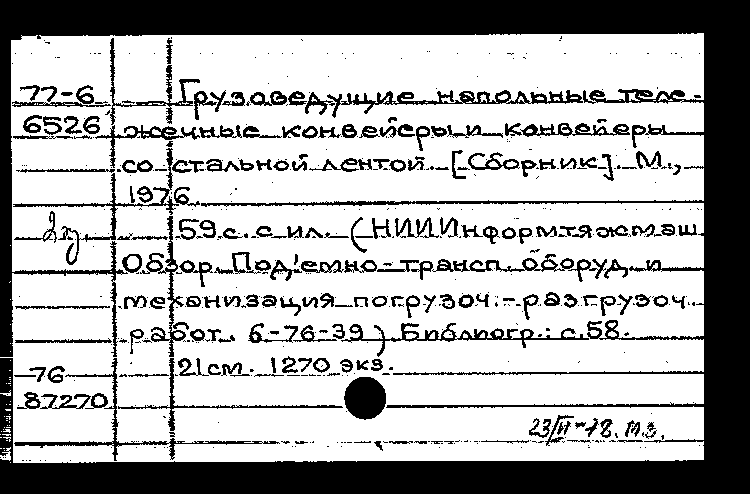 77-6 Грузоведущие напольные теле-
6526 жечные конвейеры и конвейеры
со стальной лентой. [Сборник]. М.,
1976.
2 кз. 59 с. с ил. (НИИИнформтяжмаш.
Обзор. Под'емно-трансп. оборуд. и
механизация погрузоч.-разгрузоч.
работ. 6-76-39). Библиогр.: с.58.
76 21 см. 1270 экз.
87270
23/VI-78. М.З.